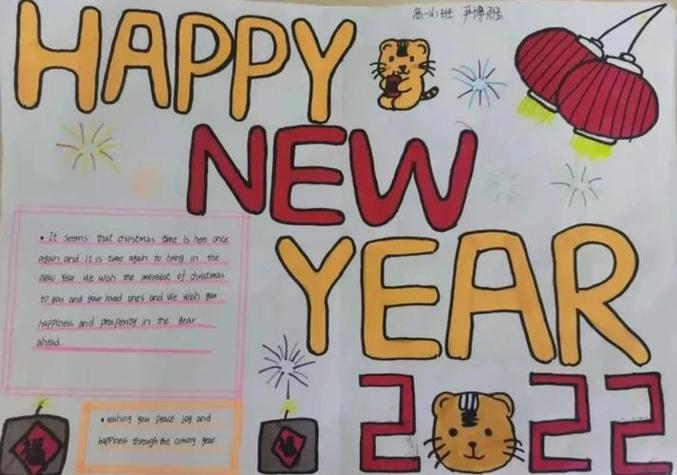 HAPPY
NEW
YEAR
2022
• It seems that christmas time is here once
again and it is time again to bring in the
New Year We wish the merriest of christmas
to you and your loved ones and We wish you
happiness and prosperity in the year
ahead.
• wishing you peace joy and
happiness through the coming year.